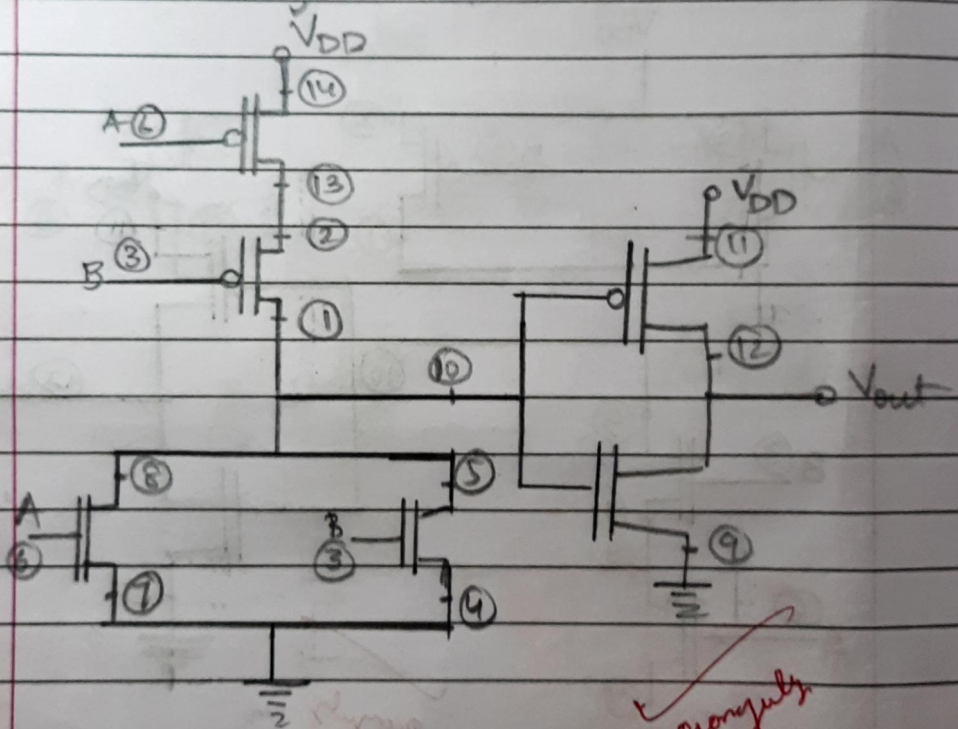 VDD
14
A 6
13
2
3
B
1
VDD
11
12
10
Vout
8
5
A
6
B
3
9
7
4